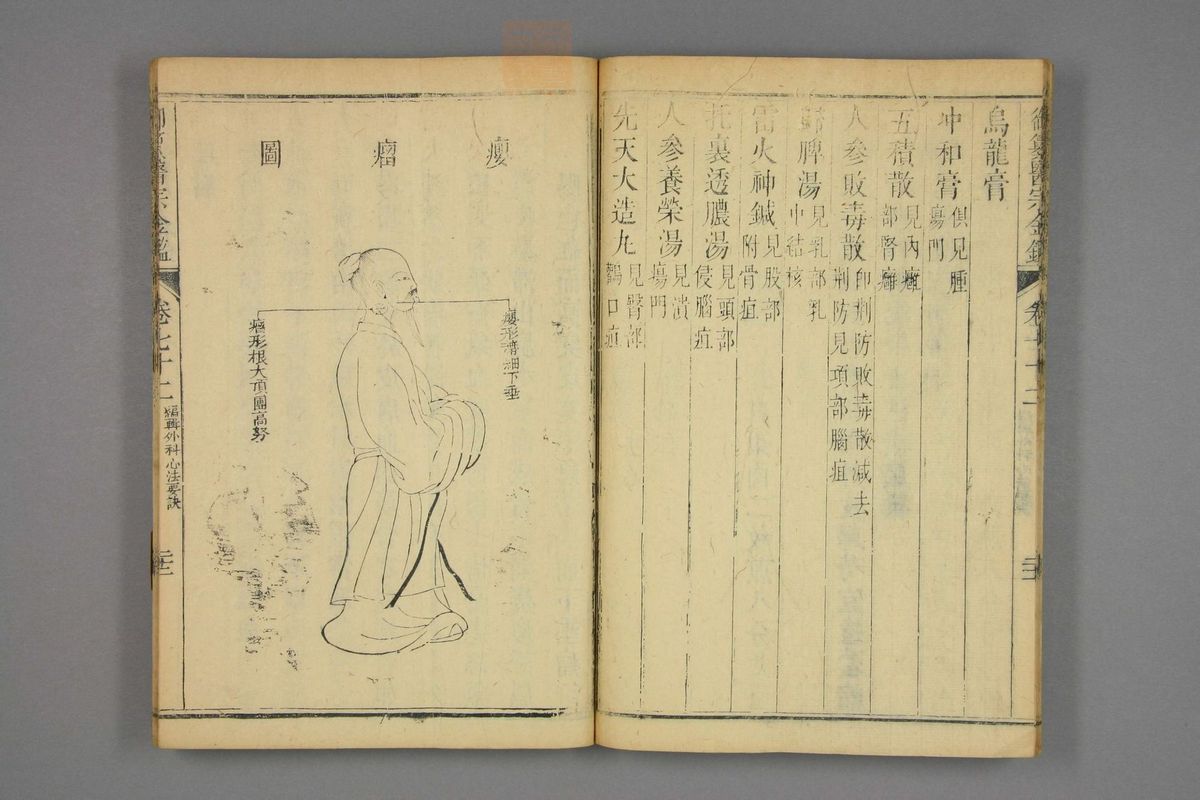 烏龍膏
冲和膏 俱見腫瘍門
五積散 見內癰部腎癰
人參敗毒散 卽荆防敗毒散減去荆防見項部腦疽
歸脾湯 見乳部乳中結核
雷火神鍼 見股部附骨疽
托裏透膿湯 見頭部侵腦疽
人參養榮湯 見潰瘍門
先天大造丸 見臀部鸛口疽
癭瘤圖
癭形滑細下垂
瘤形根大頂圓高努
御纂醫宗金鑑
卷七十二
編輯外科心法要訣